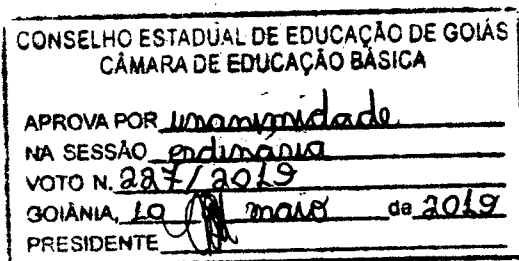 CONSELHO ESTADUAL DE EDUCAÇÃO DE GOIÁS
CÂMARA DE EDUCAÇÃO BÁSICA
APROVA POR unanimidade
NA SESSÃO ordinária
VOTO N. 227/2019
GOIÂNIA, 10 maio de 2019
PRESIDENTE